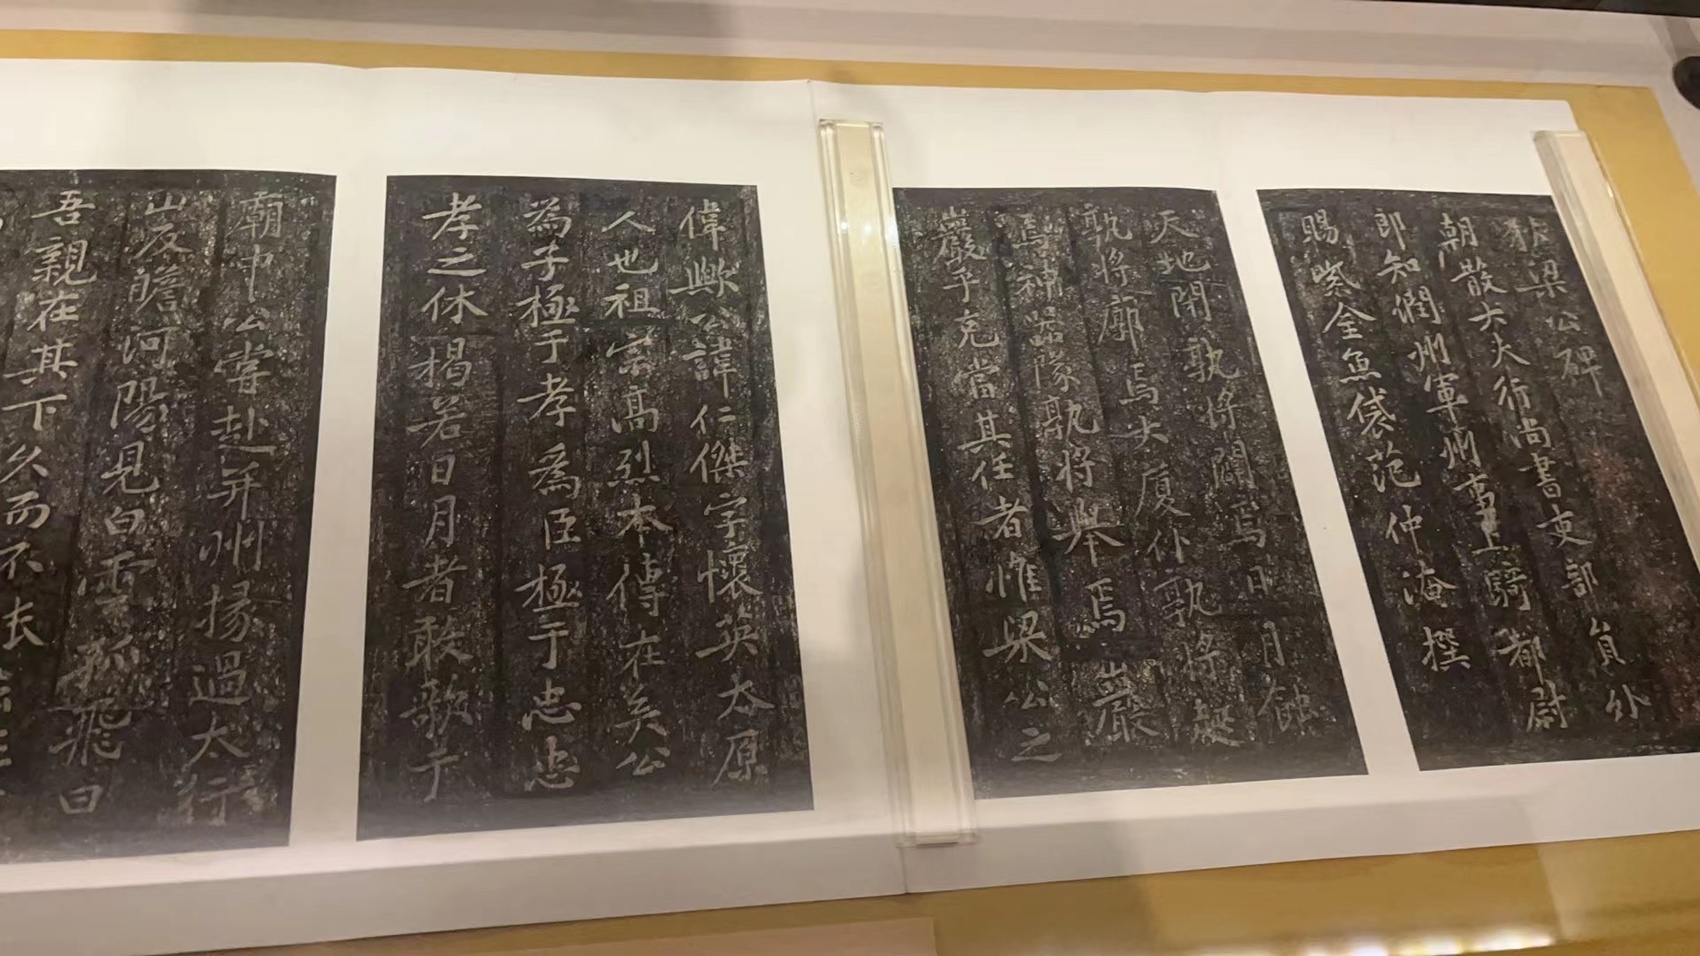 狄梁公碑
朝散大夫行尚書吏部員外
郎知潤州軍州事上騎都尉
賜紫金魚袋范仲淹撰
天地閉孰將闢焉日月蝕
孰將廓焉大廈仆孰將起
焉神器隊孰將舉焉巖
巖乎克當其任者惟梁公之
偉歟公諱仁傑字懷英太原
人也祖宗高烈本傳在矣公
為子極于孝為臣極于忠忠
孝之休揭若日月者敢歌于
廟中公嘗赴并州掾過太行
山反瞻河陽見白雲孤飛曰
吾親在其下久而不